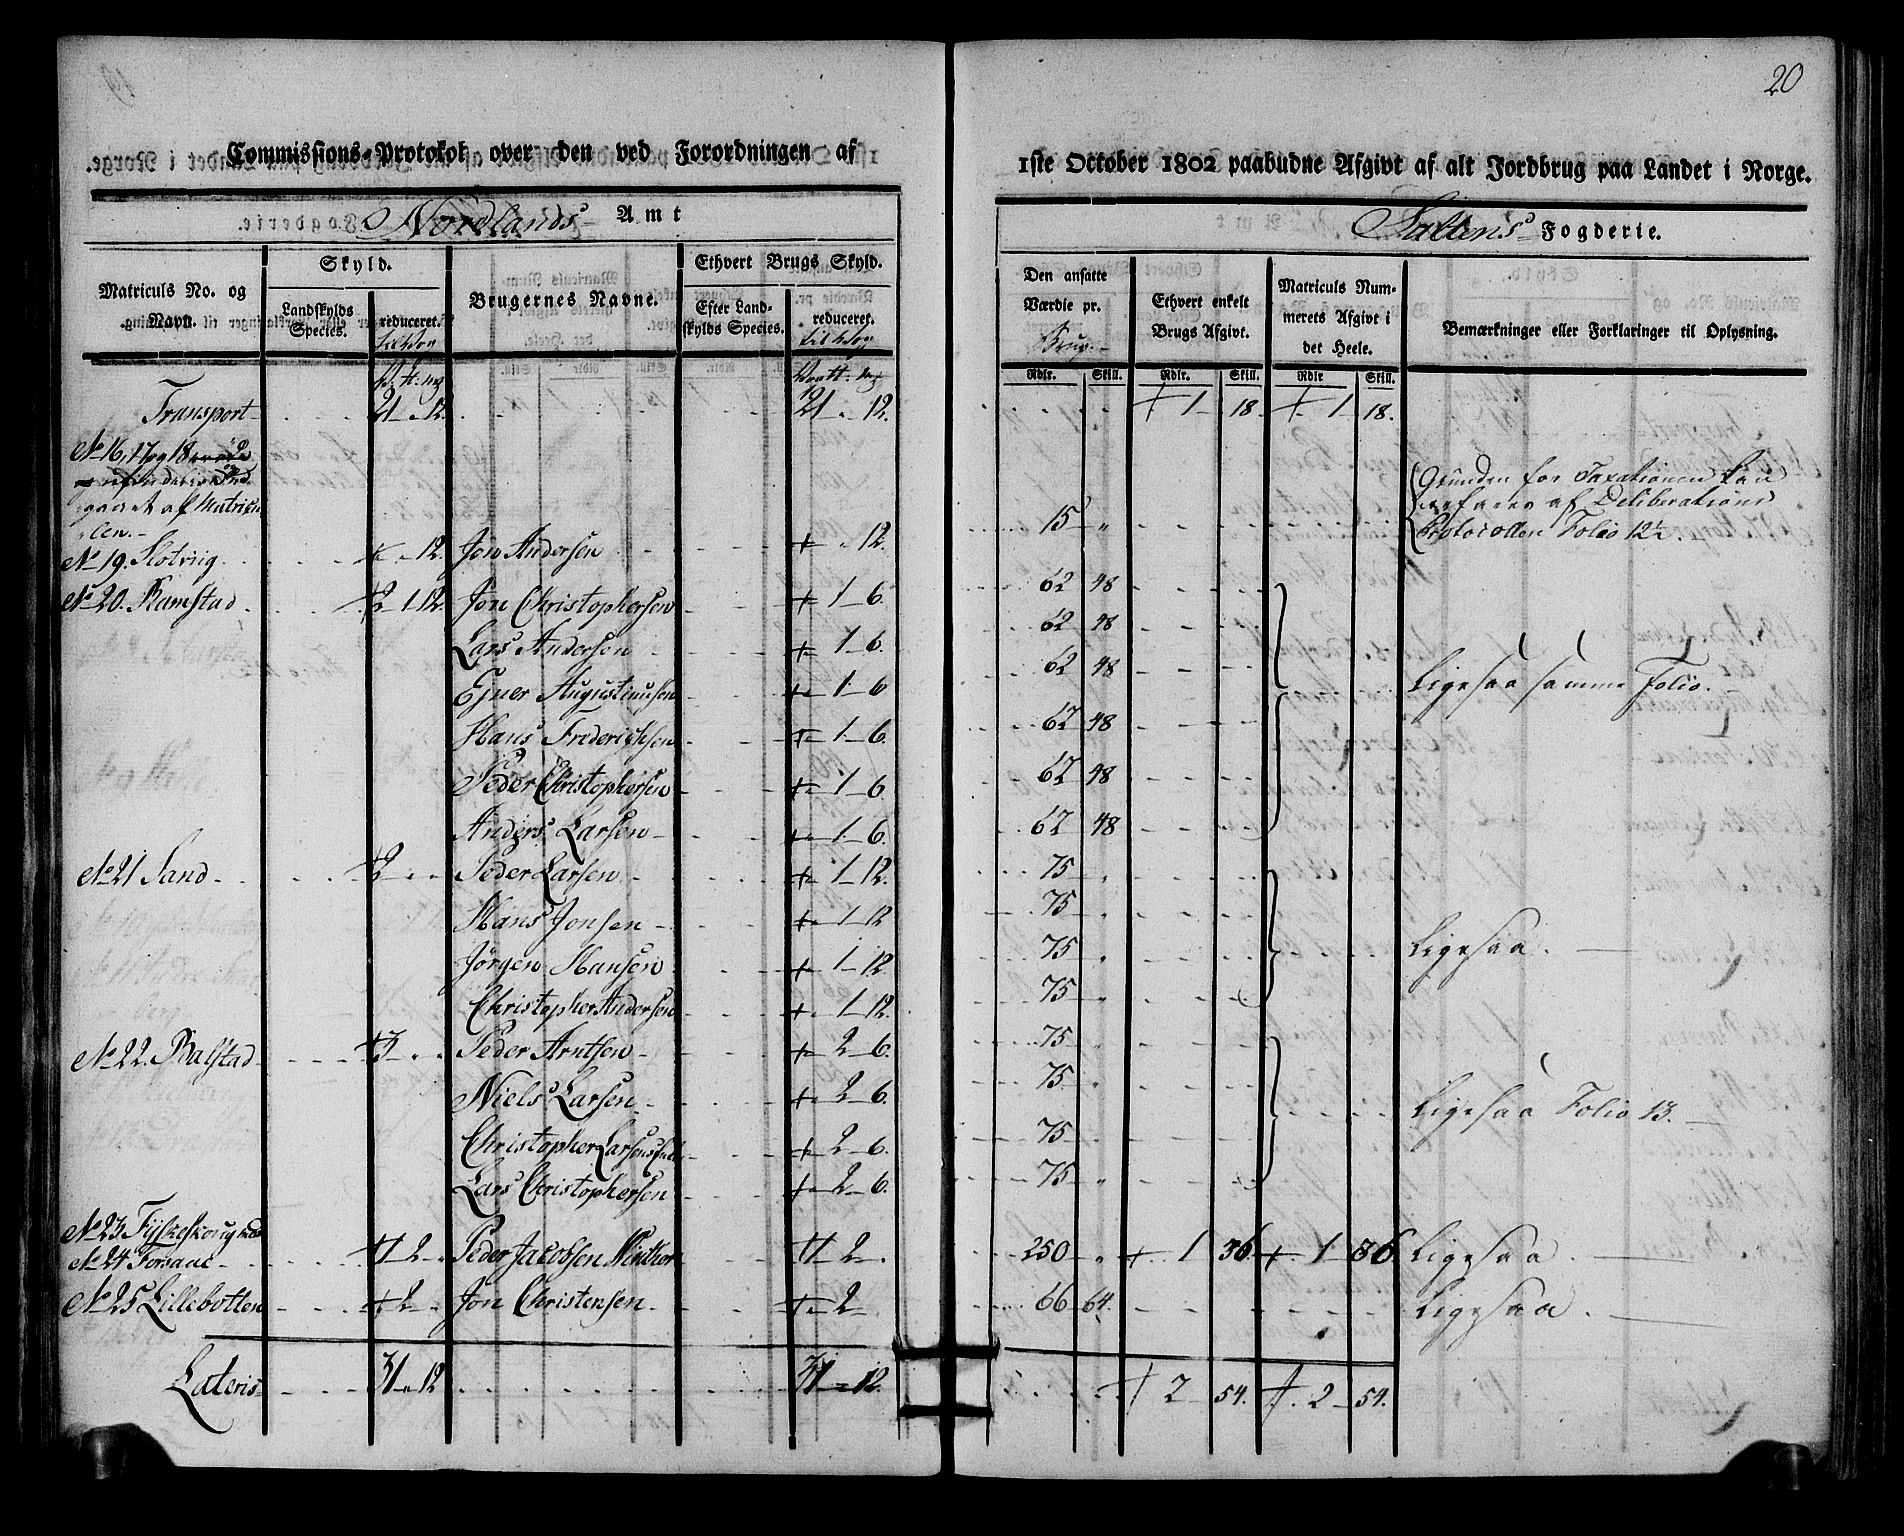 20
Commissions-Protokol over den ved Forordningen af
1ste October 1802 paabudne Afgivt af alt Jordbrug paa Landet i Norge.
Nordlands Amt
Saltens Fogderie.
Matriculs No. og Navn.
Skyld.
Landskylds Species.
reduceret.
Brugernes Navne.
Ethvert Brugs Skyld.
Efter Landskylds Species.
reduceret.
Den ansatte Værdie pr. Brug.
Ethvert enkelt Brugs Afgivt.
Matriculs Nummerets Afgivt i det Heele.
Bemærkninger eller Forklaringer til Oplysning.
Rdlr. Skill. Rdlr. Skill. Rdlr Skill.
Transport 21 " 12. 21 " 12. + 1 18. + 1 18.
No 16, 17 og 18
gaaet af Matricu-
len.
Grunden for Taxationen kan
erfares af Deliberations
Protocollen Folio 12½.
No 19. Slotvig " 12. Jon Andersen + " 12. 15 "
No 20. Ramstad 2 1 12. Jon Christophersen + 1 6. 62 48
Lars Andersen + 1 6. 62 48
Ejner Augustinusen + 1 6 62 48 Ligesaa samme Folio.
Hans Frederichsen + 1 6. 62 48
Peder Christophersen + 1 6. 62 48
Anders Larsen + 1 6. 62 48
No 21 Sand 2 " " Peder Larsen + 1 12. 75 "
Hans Jonsen + 1 12 75 "
Jörgen Hansen + 1 12 75 " Ligesaa.
Christopher Andersen + 1 12. 75 "
No 22. Balstad 3 " " Peder Arntsen + 2 6. 75 "
Niels Larsen + 2 6. 75 "
Christopher Larsens + 2 6. 75 " Ligesaa Folio 13.
Lars Christophersen + 2 6. 75 "
No 23
No 24 Forsaae 1 2 Peder Jacobsen 1 2 250 " + 1 36. + 1 36 Ligesaa.
No 25 Lillebotten + 2 Jon Christensen + 2 66 64. Ligesaa.
Lateris 31 " 12 31 " 12. + 2 54. + 2 54.